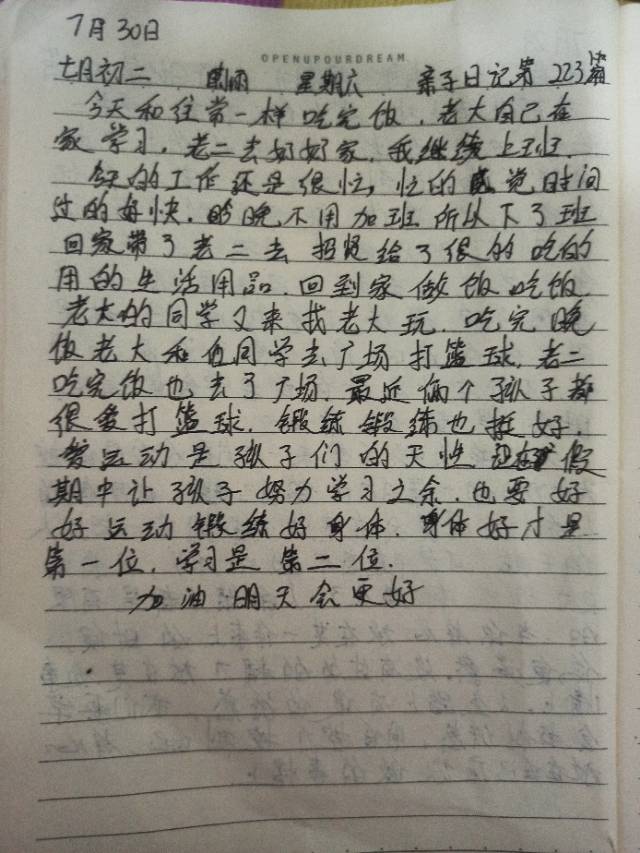 7月30日
OPENUPOURDREAM
七月初二 阴雨 星期六 亲子日记第223篇
今天和往常一样吃完饭，老大自己在
家学习，老二去奶奶家，我继续上班.
今天的工作还是很忙，忙的感觉时间
过的好快，昨晚不用加班所以下了班
回家带了老二去招贤给了很的吃的
用的生活用品，回到家做饭吃饭，
老大的同学又来找老大玩，吃完晚
饭老大和他同学去广场打篮球，老二
吃完饭也去了广场，最近俩个孩子都
很爱打篮球，锻练锻练也挺好，
爱运动是孩子们的天性 假
期中让孩子努力学习之余，也要好
好运动锻练好身体，身体好才是
第一位，学习是第二位.
加油 明天会更好